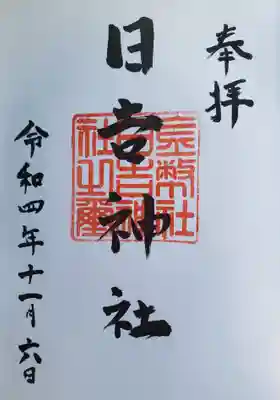 奉拝
日吉神社
令和四年十一月六日